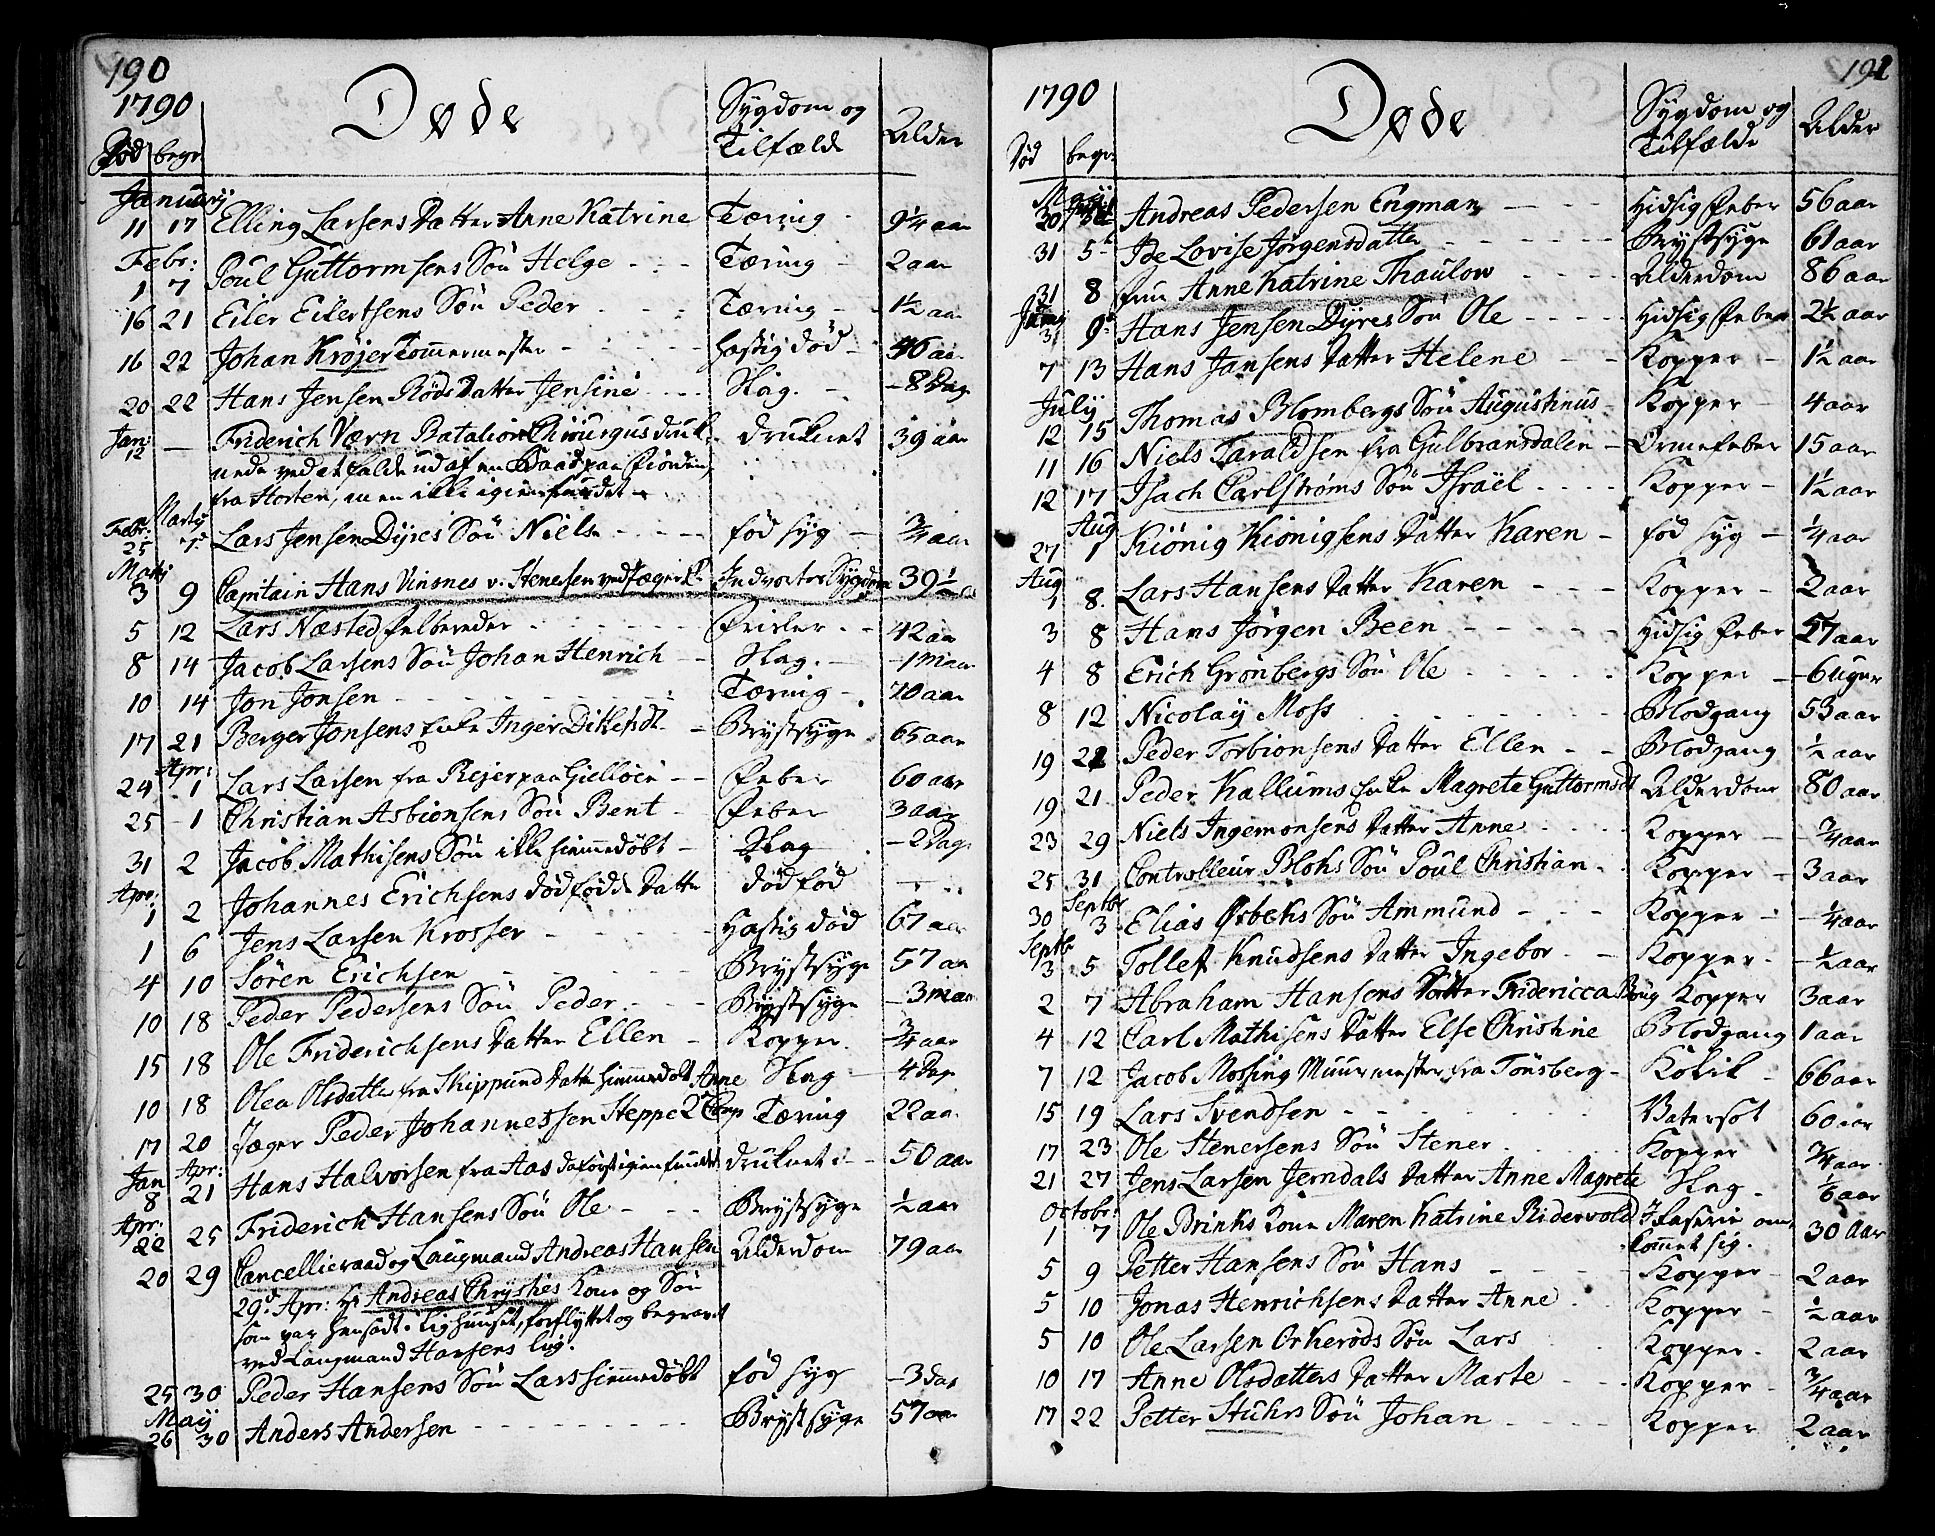 190
1790 Døde Sygdom og Tilfælde Alder
Død begr.
January
11 17 Elling Larsens Datter Anne Katrine Tæring 9 1/4 aar
Febr:
1 7 Poul Guttormsens Søn Helge Tæring 2 aar
16 21 Eiler Eilertsens Søn Peder Tæring 1 1/2 aar
16 22 Johan Krøjer Tømmermester hastig død 46 aar
20 22 Hans Jensen Røds Datter Jensine Slag 8 Dag
Jan: 12 — Friderich Værn Batalions Chirurgus druk- druknet 39 aar
nede ved at falde ud af en Baad paa Fiorden,
fra Horten, men ikke igienfundet
Marty
Febr: 25 7 Lars Jensen Dyres Søn Niels fød syg 3/4 aar
Martij
3 9 Capitain Hans Vinsnes v. Stenersen ved Jæger C. Indvortes Sygdom 39 1/2 aar
5 12 Lars Næsted Felbereder 42 aar
8 14 Jacob Larsens Søn Johan Henrich Slag 1 maan
10 14 Jon Jonsen Tæring 70 aar
17 21 Berger Jonsens Enke Inger Ditlefsdt. Brystsyge 65 aar
Apr:
24 1 Lars Larsen fra Rejer paa Gielløen Feber 60 aar
25 1 Christian Asbionsens Søn Bent Feber 3 aar
31 2 Jacob Mathisens Søn ikke hiemmedøbt Slag 2 Dag
Apr:
1 2 Johannes Erichsens dødfødde Datter dødfød
1 6 Jens Larsen Krosser Hastig død 67 aar
4 10 Søren Erichsen Brystsyge 57 aar
10 18 Peder Pedersens Søn Peder Brystsyge 3 maan
15 18 Ole Friderichsens Datter Ellen Kopper 3/4 aar
10 18 Olea Olsdatter fra Skippund Datter hiemmedøbt Anne Slag 4 Dag
17 20 Jæger Peder Johannessen Steppe 2d Comp Tæring 22 aar
Jan Apr:
8 21 Hans Halvorsen fra Aas da først igienfundet druknet 50 aar
Apr:
22 25 Friderich Hansens Søn Ole Brystsyge 1/2 aar
20 29 Cancellieraad og Laugmand Andreas Hansen Alderdom 79 aar
29d Apr: Hr Andreas Chrysties Kone og Søn
som var hensadt i Lighuuset, forflyttet og begravet
ved Laugmand Hansens Liig.
25 30 Peder Hansens Søn Lars hiemmedøbt fød syg 3 dag
May
26 30 Anders Andersen Brystsyge 57 aar
191
1790 Døde Sygdom og Tilfælde Alder
Død begr.
30 Andreas Pedersen Engman Hidsig Feber 56 aar
31 5 Ide Lovise Jørgensdatter Brystsyge 61 aar
31 8 Frue Anne Katrine Thaulow Alderdom 86 aar
Juny
3 9 Hans Jensen Dyres Søn Ole Hidsig Feber 2 1/2 aar
7 13 Hans Jansens Datter Helene Kopper 1 1/2 aar
July
12 15 Thomas Blombergs Søn Augustinus Kopper 4 aar
11 16 Niels Taraldsen fra Gulbransdalen Ormefeber 15 aar
12 17 Isach Carlstrøms Søn Israël Kopper 1 1/2 aar
Aug
27 1 Kiönig Kionigsens Datter Karen fød syg 1/4 aar
Aug
1 8 Lars Hansens Datter Karen Kopper 2 aar
3 8 Hans Jørgen Been Hidsig Feber 57 aar
4 8 Erich Grønbergs Søn Ole Kopper 6 uger
8 12 Nicolaij Moss Blodgang 53 aar
19 21 Peder Torbionsens Datter Ellen Blodgang 1/2 aar
19 21 Peder Kallums Enke Magrete Guttormsdt Alderdom 80 aar
23 29 Niels Ingemonsens Datter Anne Kopper 3/4 aar
25 31 Controlleur Blohs Søn Poul Christian Kopper 3 aar
Septbr
30 3 Elias Ørbeks Søn Ammund Kopper 1/4 aar
Septbr
3 5 Tollef Knudsens Datter Ingebor Kopper 1/2 aar
2 7 Abraham Hansens Datter Fridericca Kopper 3 aar
4 12 Carl Mathisens Datter Else Christine Blodgang 1 aar
7 12 Jacob Mossing Muurmester fra Tönsberg Kolik 66 aar
15 19 Lars Svendsen Vatersot 60 aar
17 23 Ole Stenersens Søn Stener Kopper 3/4 aar
21 27 Jens Larsen Jerndals Datter Anne Magrete Slag 1/6 aar
Octobr:
1 7 Ole Brinks Kone Maren Katrine Ridervold I Raserie om- 30 aar
kommet sig.
5 9 Petter Hansens Søn Hans Kopper 2 aar
5 10 Jonas Henrichsens Datter Anne Kopper 1/2 aar
5 10 Ole Larsen Orkerøds Søn Lars Kopper 2 aar
10 17 Anne Olsdatters Datter Marte Kopper 3/4 aar
17 22 Petter Stuhrs Søn Johan Kopper 2 aar